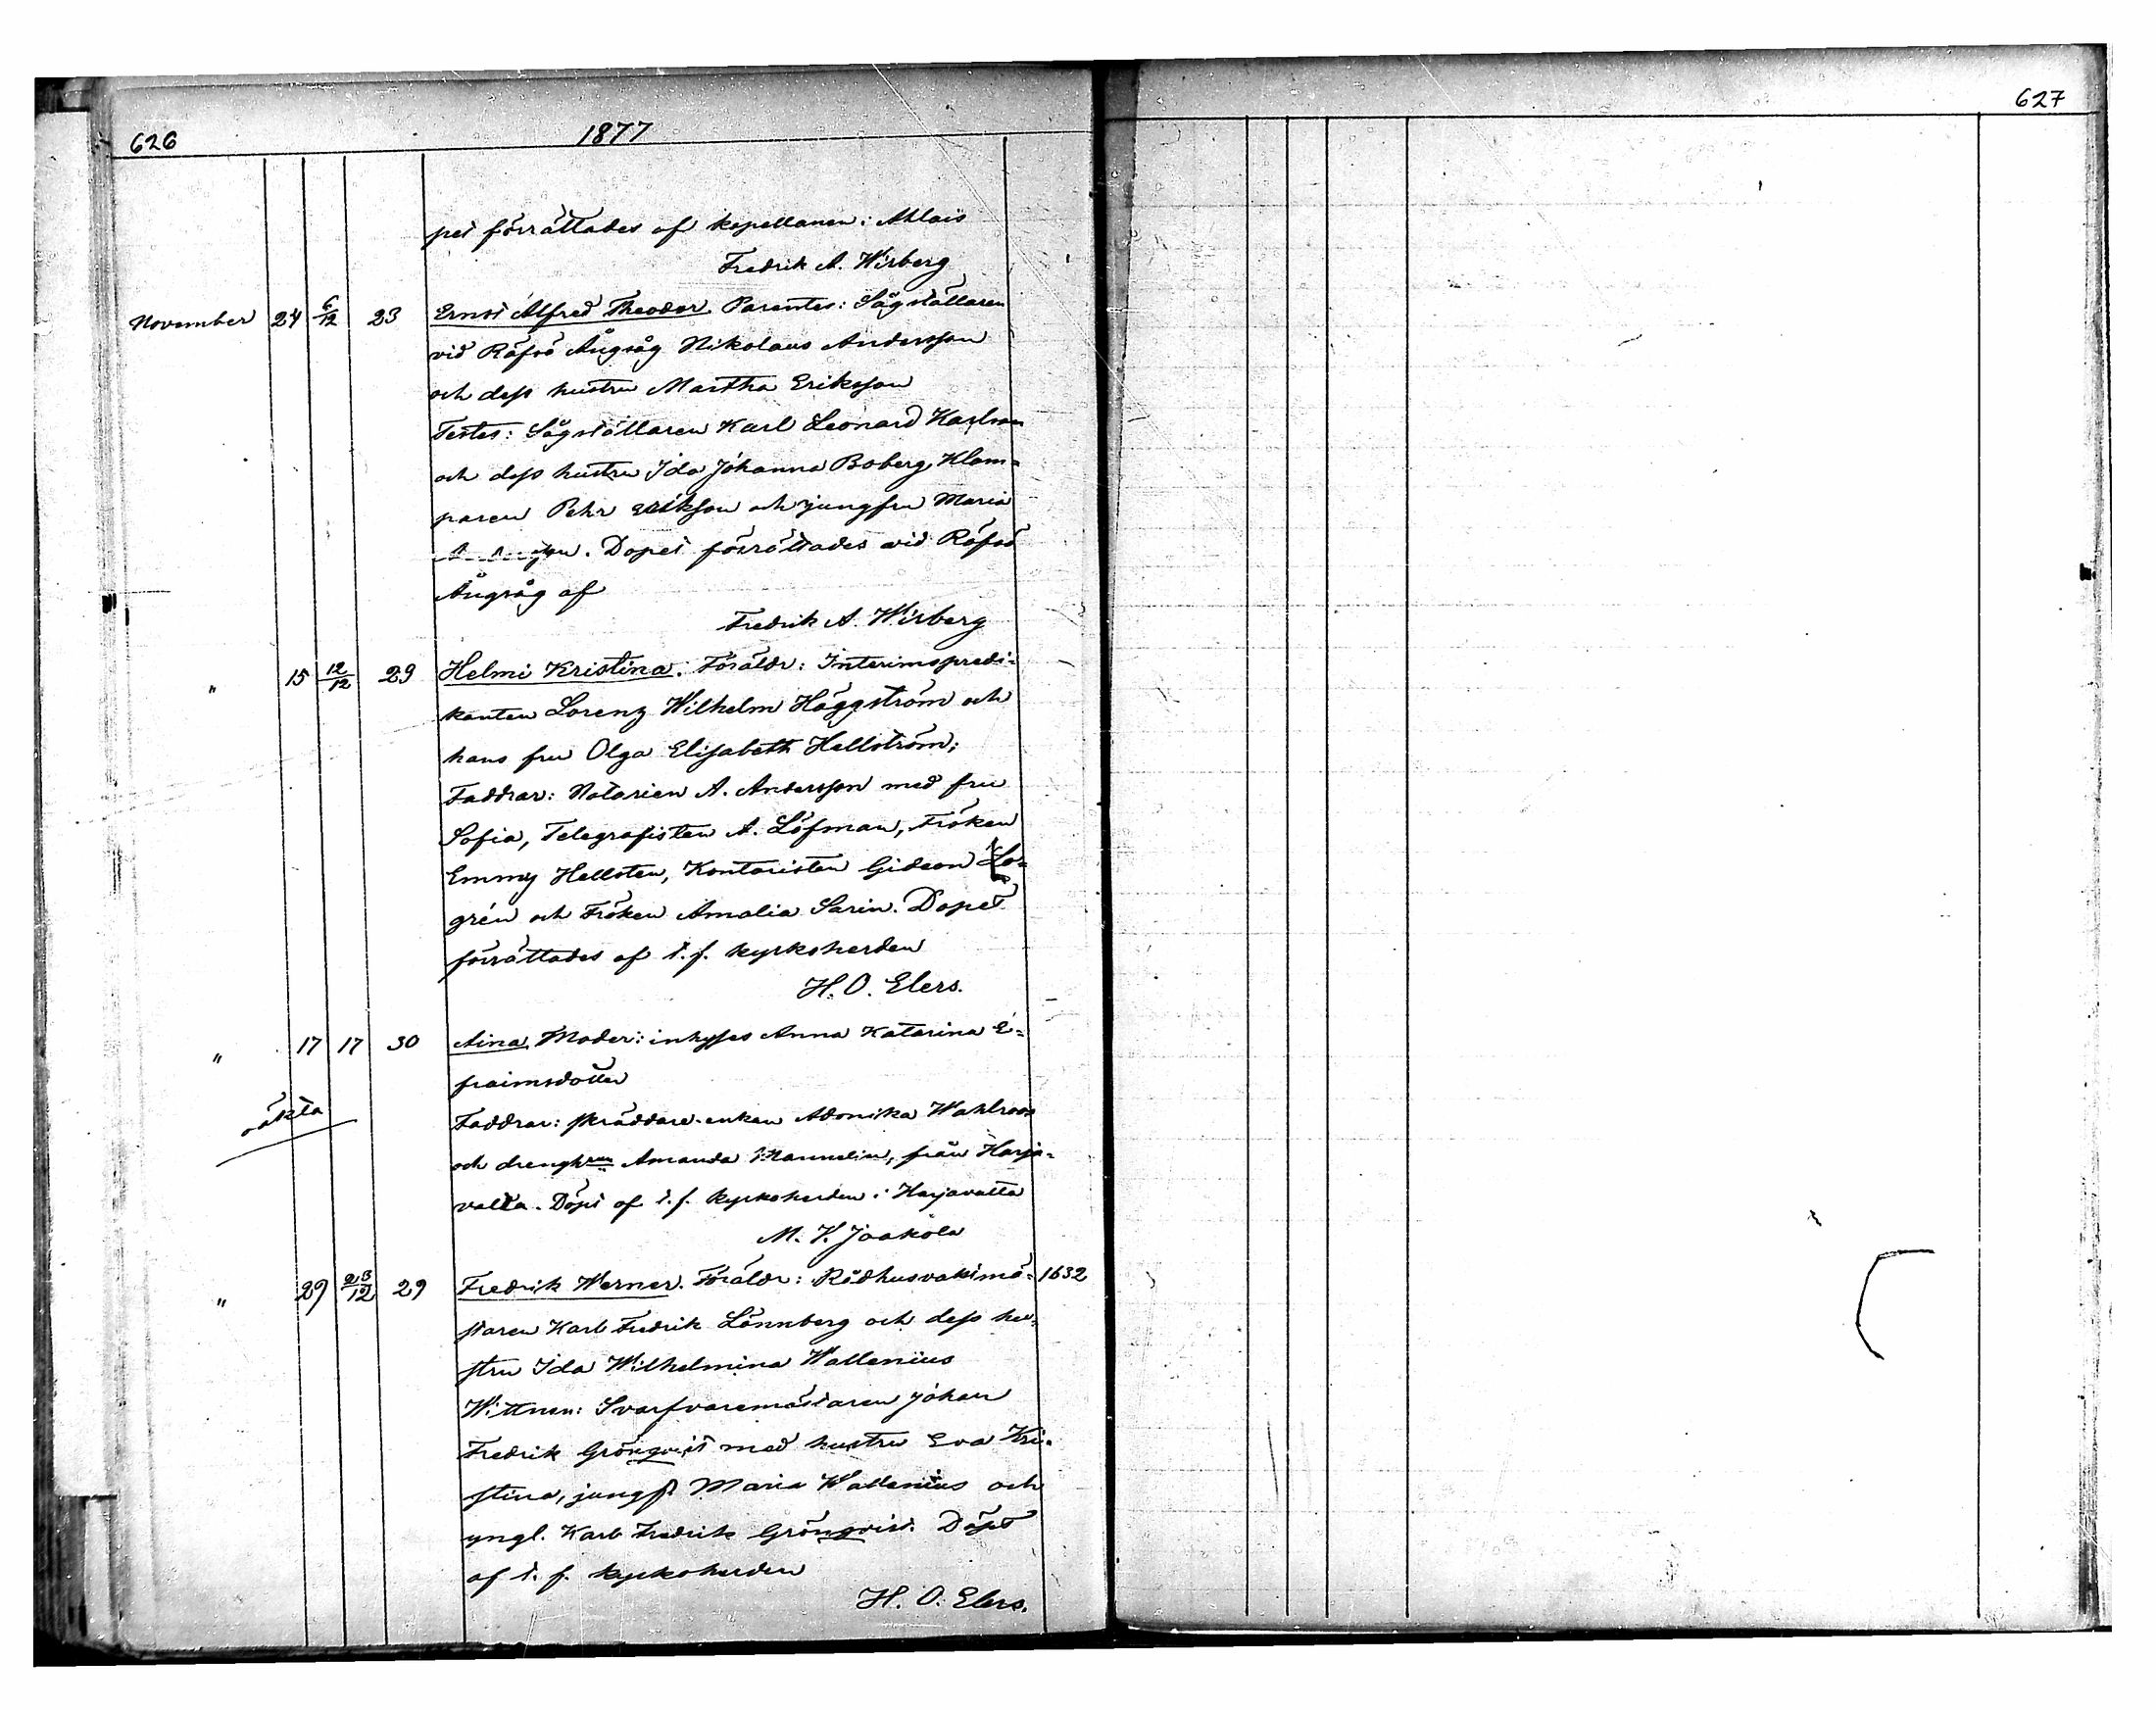 626
1877
627
pet förrättades af kapellanen i Ahlais
Fredrik A. Wirberg
November 24 6/12 23 Ernst Alfred Theodor. Parentes: Sågställaren
vid Räfsö Ångsåg Nikolaus Andersson
och dess hustru Martha Eriksson
Testes: Sågställaren Karl Leonard Karlson
och dess hustru Ida Johanna Boberg, Klam-
paren Pehr Erikson och jungfru Maria
Dopet förrättades vid Räfsö
Ångsåg af
Fredrik A. Wirberg
" 15 12/12 29 Helmi Kristina. Föräldr: Interimspredi-
kanten Lorenz Wilhelm Häggström och
hans fru Olga Elisabeth Hellström;
Faddrar: Notarien A. Andersson med fru
Sofia, Telegrafisten A. Löfman, Fröken
Emmy Hellsten, Kontoristen Gideon Lo-
grén och Fröken Amalia Sarin. Dopet
förrättades af t.f. kyrkoherden
H. O. Elers.
" 17 17 30 Aina. Moder: inhyses Anna Katarina E-
fraimsdotter
oäkta
Faddrar: skräddare-enkan Adonika Wahlroos
och drengh:un Amanda Mannelin, från Harja-
valta. Döpt af t.f. Kyrkoherden i Harjavalta
M. V. Jaakola
" 29 23/12 29 Fredrik Werner. Föräldr: Rådhusvaktmä- 1632
staren Karl Fredrik Lönnberg och dess hu-
stru Ida Wilhelmina Wallenius
Wittnen: Svarfvaremästaren Johan
Fredrik Grönqvist med hustru Eva Kri-
stina, jungf. Maria Wallenius och
yngl. Karl Fredrik Grönqvist. Döpt
af t. f. kyrkoherden
H. O. Elers.